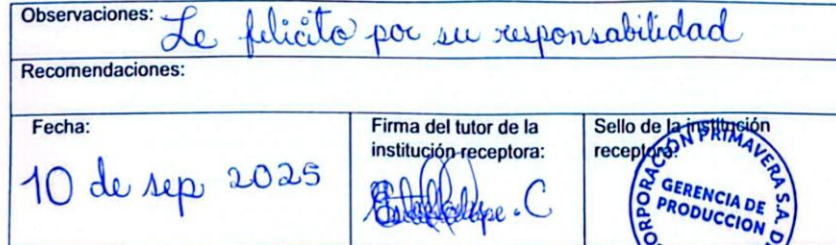 Observaciones: Le felicito por su responsabilidad
Recomendaciones:
Fecha:
10 de sep 2025
Firma del tutor de la
institución receptora:
Sello de la institución
receptora:
CORPORACIÓN PRIMAVERA S.A. D
GERENCIA DE
PRODUCCION